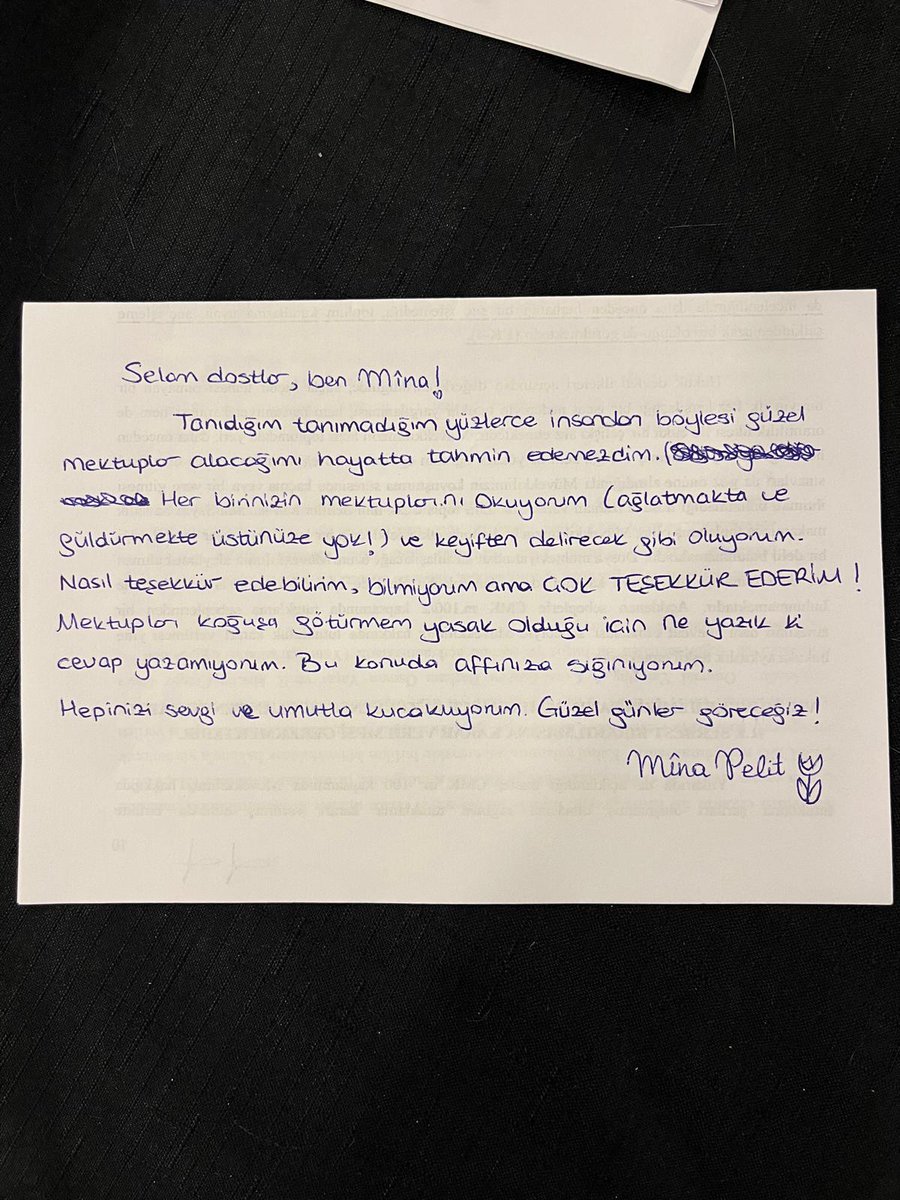 Selam dostlar, ben Mîna!
Tanıdığım tanımadığım yüzlerce insandan böylesi güzel
mektuplar alacağımı hayatta tahmin edemezdim. (
Her birinizin mektuplarını okuyorum (ağlatmakta ve
güldürmekte üstünüze yok!) ve keyiften delirecek gibi oluyorum.
Nasıl teşekkür edebilirim, bilmiyorum ama ÇOK TEŞEKKÜR EDERİM!
Mektupları koğuşa götürmem yasak olduğu için ne yazık ki
cevap yazamıyorum. Bu konuda affınıza sığınıyorum.
Hepinizi sevgi ve umutla kucaklıyorum. Güzel günler göreceğiz!
Mîna Pelit